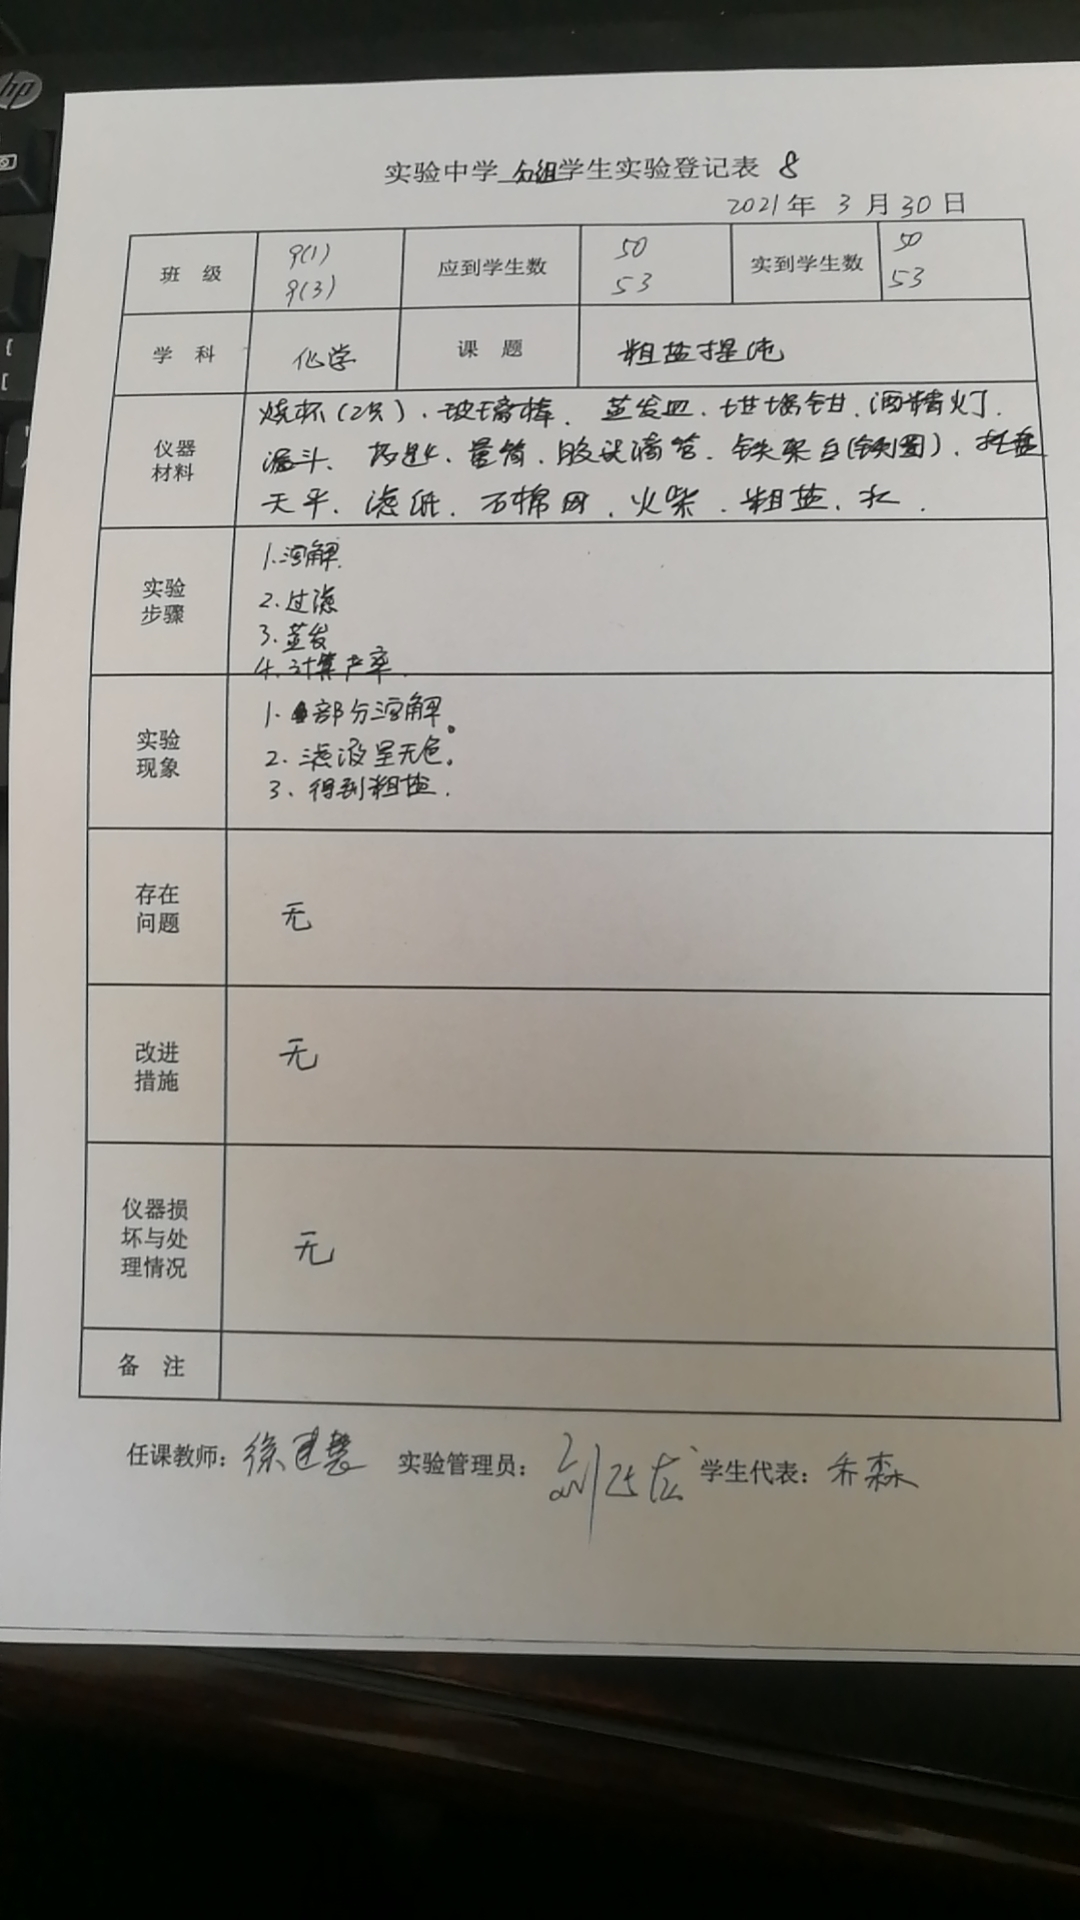 hp
实验中学分组学生实验登记表 8
2021年 3 月 30 日
班 级 9(1) 9(3) 应到学生数 50 53 实到学生数 50 53
学 科 化学 课 题 粗盐提纯
仪器材料
烧杯(2只)、玻璃棒、蒸发皿、坩埚钳、酒精灯、
漏斗、药匙、量筒、胶头滴管、铁架台(铁圈)、托盘
天平、滤纸、石棉网、火柴、粗盐、水.
实验步骤
1.溶解.
2.过滤
3.蒸发
4.计算产率.
实验现象
1.部分溶解。
2.滤液呈无色。
3.得到粗盐.
存在问题
无
改进措施
无
仪器损坏与处理情况
无
备 注
任课教师: 徐建慧 实验管理员: 学生代表: 乔森